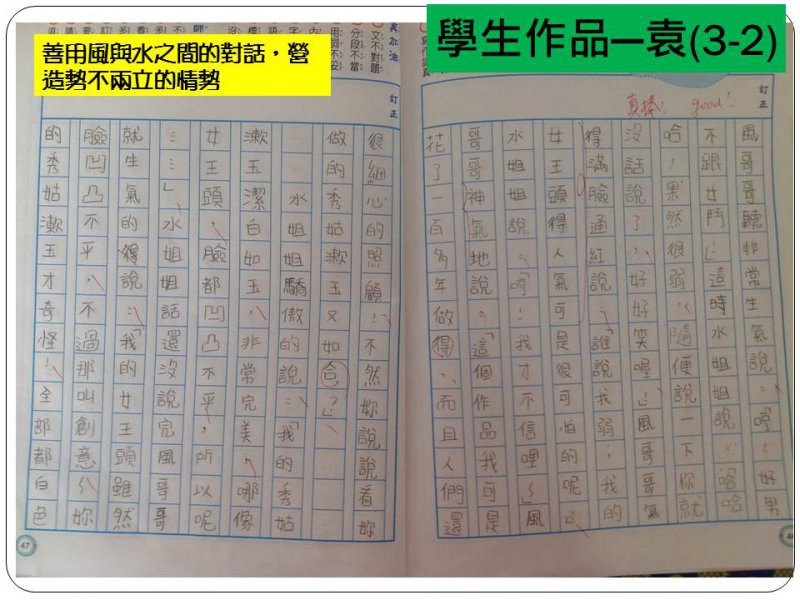 善用風與水之間的對話，營
造勢不兩立的情勢
學生作品—袁(3-2)
訂正
真棒! good!
風哥哥聽非常生氣說：「哼！好男
不跟女鬥！」這時水姐姐說：「哈哈
哈！果然很弱，隨便說一下，你就
沒話說了，好好笑喔！」風哥哥氣
得滿臉通紅說：「誰說我弱：我的
女王頭得人氣可是很可怕的呢！」
水姐姐說：「哼！我才不信哩～」風
哥哥神氣地說：「這個作品我可是
花了一百多年做得，而且人們還
46
訂正
文不對題
分段不當
用詞不妥
很細心的照顧！不然妳說說看妳
做的秀姑漱玉又如合？」
水姐姐驕傲的說：「我的秀姑
漱玉潔白如玉，非常完美，哪像
女王頭，臉都凹凸不平，所以呢
……」水姐姐話還沒說完風哥哥
就生氣的得說：「我的女王頭雖然
臉凹凸不平，不過那叫創意～妳
的秀姑漱玉才奇怪！全部都白色
47